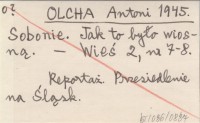 o?
OLCHA Antoni 1945.
Sobonie. Jak to było wios-
ną. — Wieś 2, nr 7-8.
Reportaż. Przesiedlenie
na Śląsk.